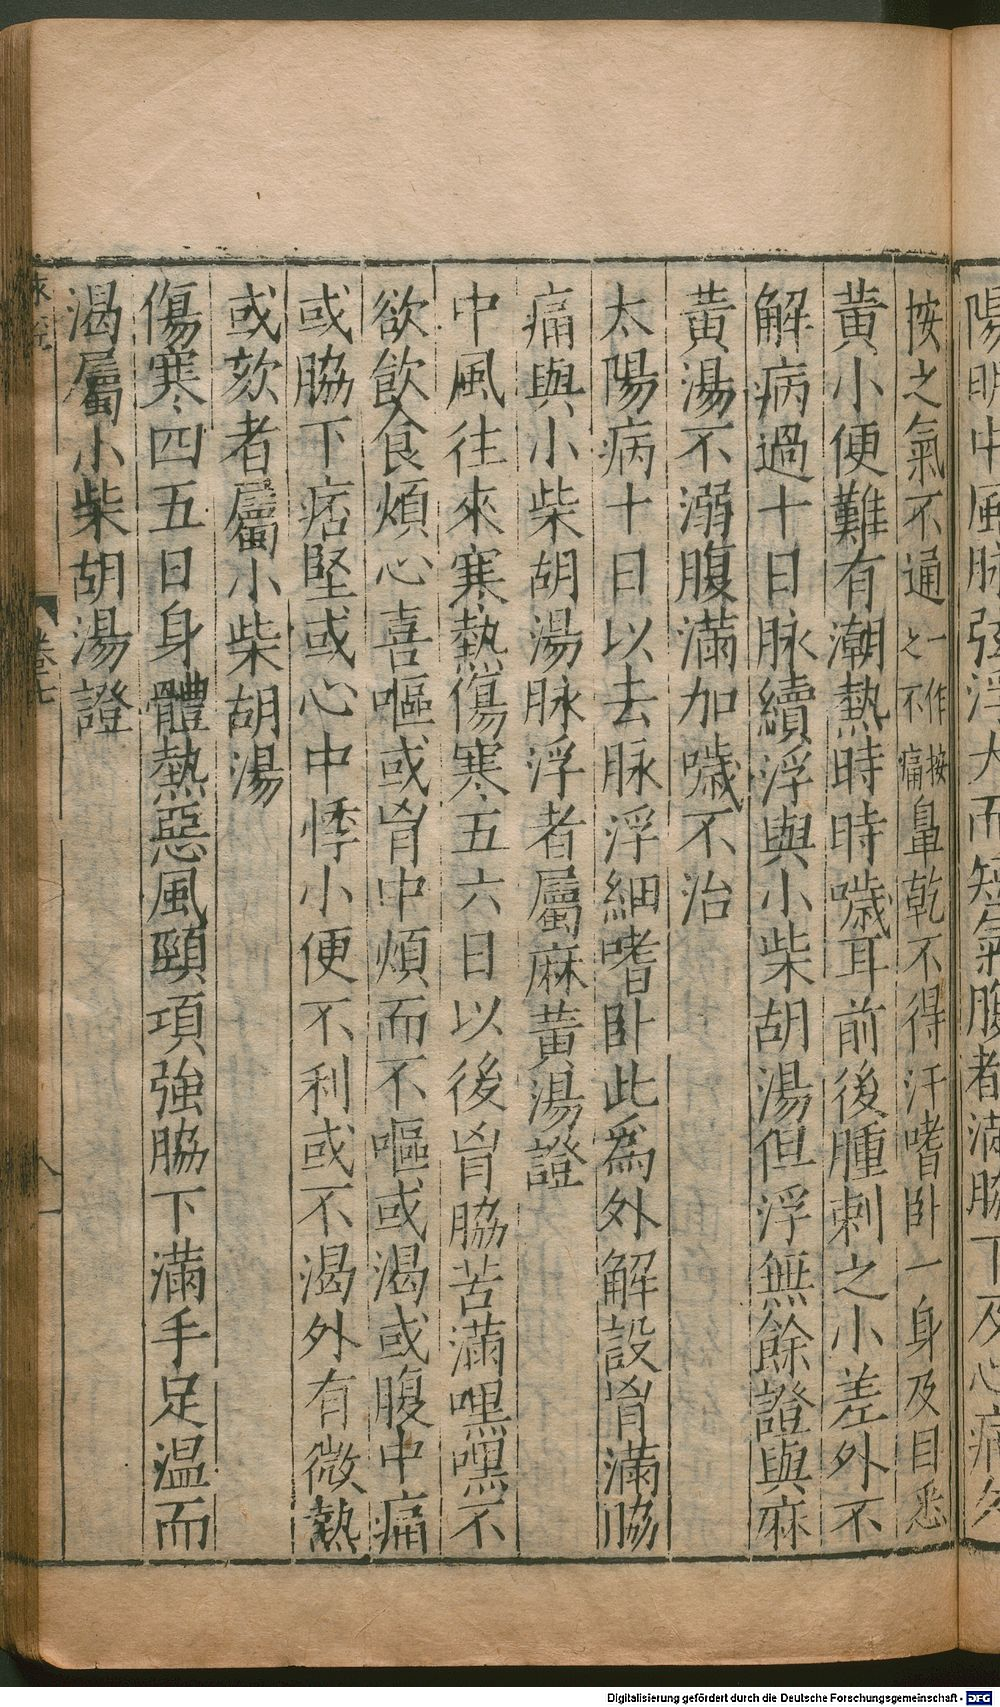 陽明中風脉弦浮大而短氣腹者滿脇下及心痛久
按之氣不通一作按之不痛鼻乾不得汗嗜卧一身及目悉
黃小便難有潮熱時時噦耳前後腫刺之小差外不
解病過十日脉續浮與小柴胡湯但浮無餘證與麻
黃湯不溺腹滿加噦不治
太陽病十日以去脉浮細嗜卧此為外解設胷滿脇
痛與小柴胡湯脉浮者屬麻黃湯證
中風往來寒熱傷寒五六日以後胷脇苦滿嘿嘿不
欲飲食煩心喜嘔或胷中煩而不嘔或渴或腹中痛
或脇下痞堅或心中悸小便不利或不渴外有微熱
或欬者屬小柴胡湯
傷寒四五日身體熱惡風頸項強脇下滿手足温而
渴屬小柴胡湯證
脉經
卷七
Digitalisierung gefördert durch die Deutsche Forschungsgemeinschaft - DFG